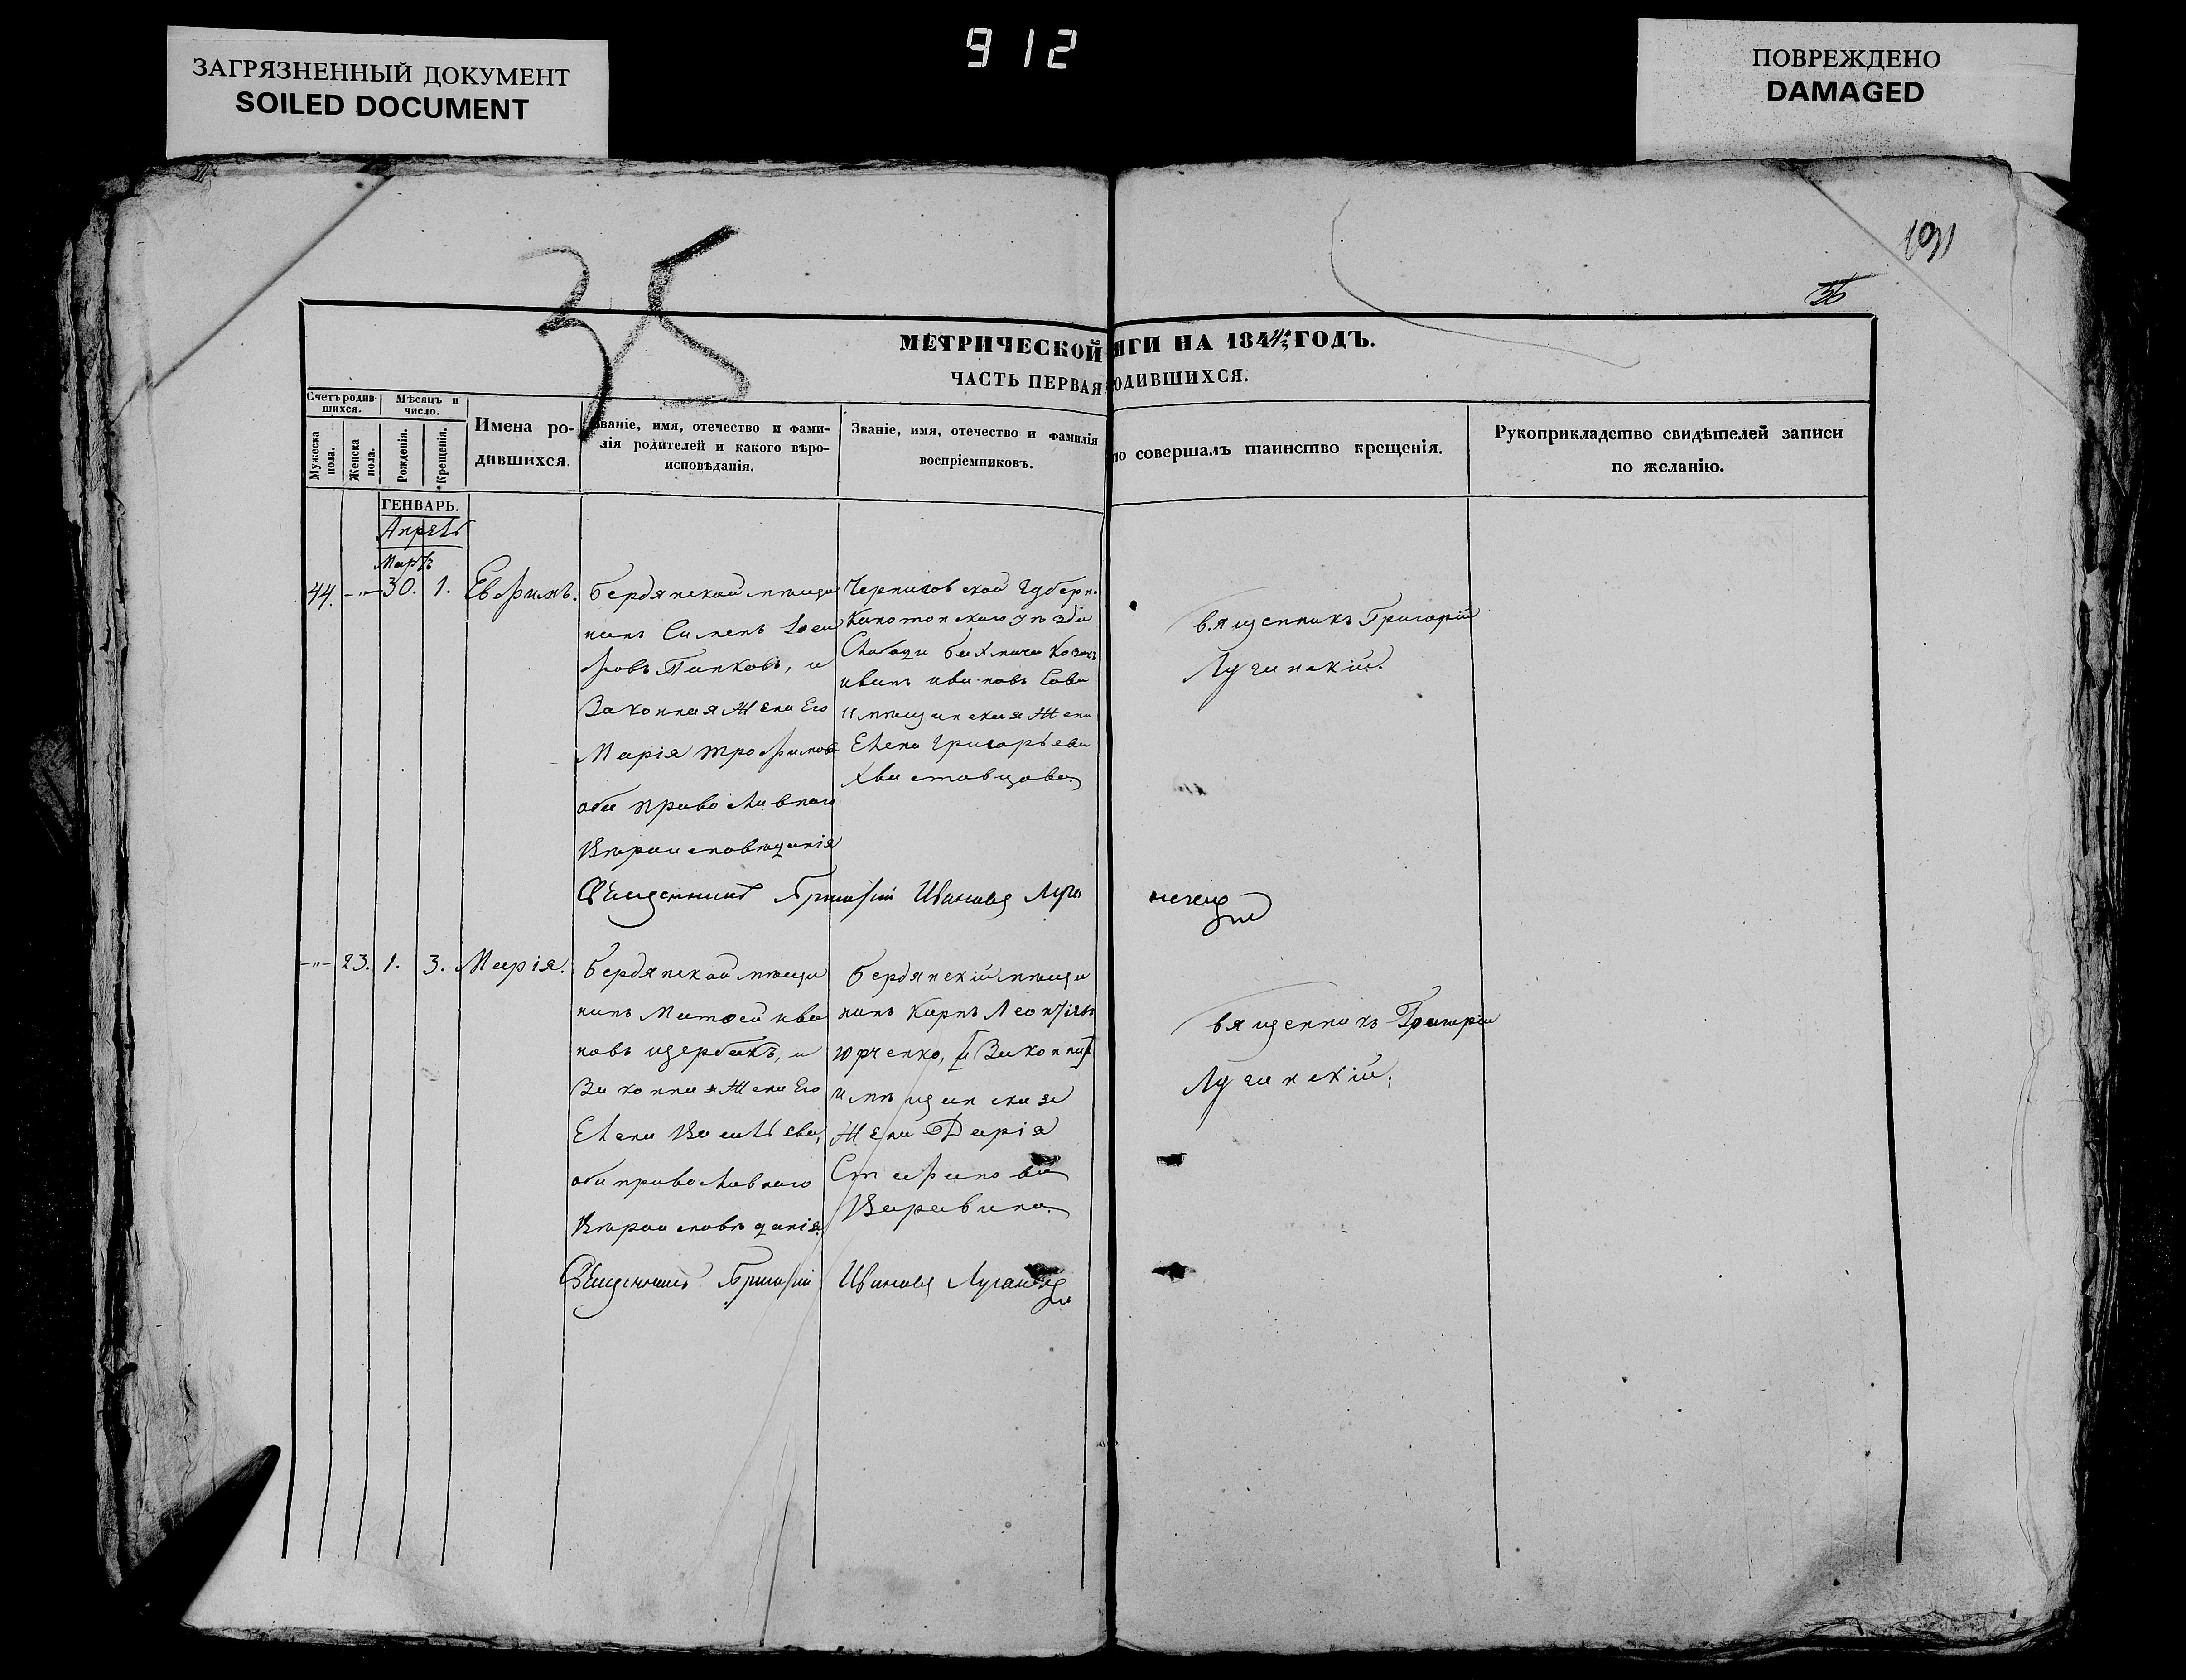 912
ЗАГРЯЗНЕННЫЙ ДОКУМЕНТ
SOILED DOCUMENT
ПОВРЕЖДЕНО
DAMAGED
191
35
36
МЕТРИЧЕСКОЙ ИГИ НА 184 ГОДЪ.
ЧАСТЬ ПЕРВАЯ ОДИВШИХСЯ.
Счетъ родив-
шихся.
Мужеска
пола.
Женска
пола.
Мѣсяцъ и
число.
Рожденія.
Крещенія.
Имена ро-
дившихся.
Званіе, имя, отечество и фами-
лія родителей и какого вѣро-
исповѣданія.
Званіе, имя, отечество и фамилія
воспріемниковъ.
то совершалъ таинство крещенія.
Рукоприкладство свидѣтелей записи
по желанію.
ГЕНВАРЬ.
Апрель
Мартъ
44.
-"-
30.
1.
Евфимъ.
бердянской мѣщи
нинъ Сименъ
Папковъ, и
Законная Жена Его
Марія трофимова
оба православнаго
Вѣроисповѣданія
Черниговской Губерн.
Канотопскаго уѣзда
Слабоди бахмача Козакъ
иванъ ивановъ Сова
и мѣщанская Жена
Елена григорьева
Хвастовцова
вященникъ Григорій
Луганскій.
Священникъ Григорій Ивановъ Луга
-"-
23.
1.
3.
Марія.
бердянской мѣщи
нинъ Матвей ива
новъ щербакъ, и
Законная Жена Его
Елена Васильева,
оба православнаго
Вѣроисповѣданія.
бердянскій мѣща
нинъ Карпъ Леонтіевъ
юрченко, [и Законная]
и мѣщанская
Жена Дарія
Стефанова
Варавина.
вященникъ Григорій
Луганскій.
Священникъ Григорій Ивановъ